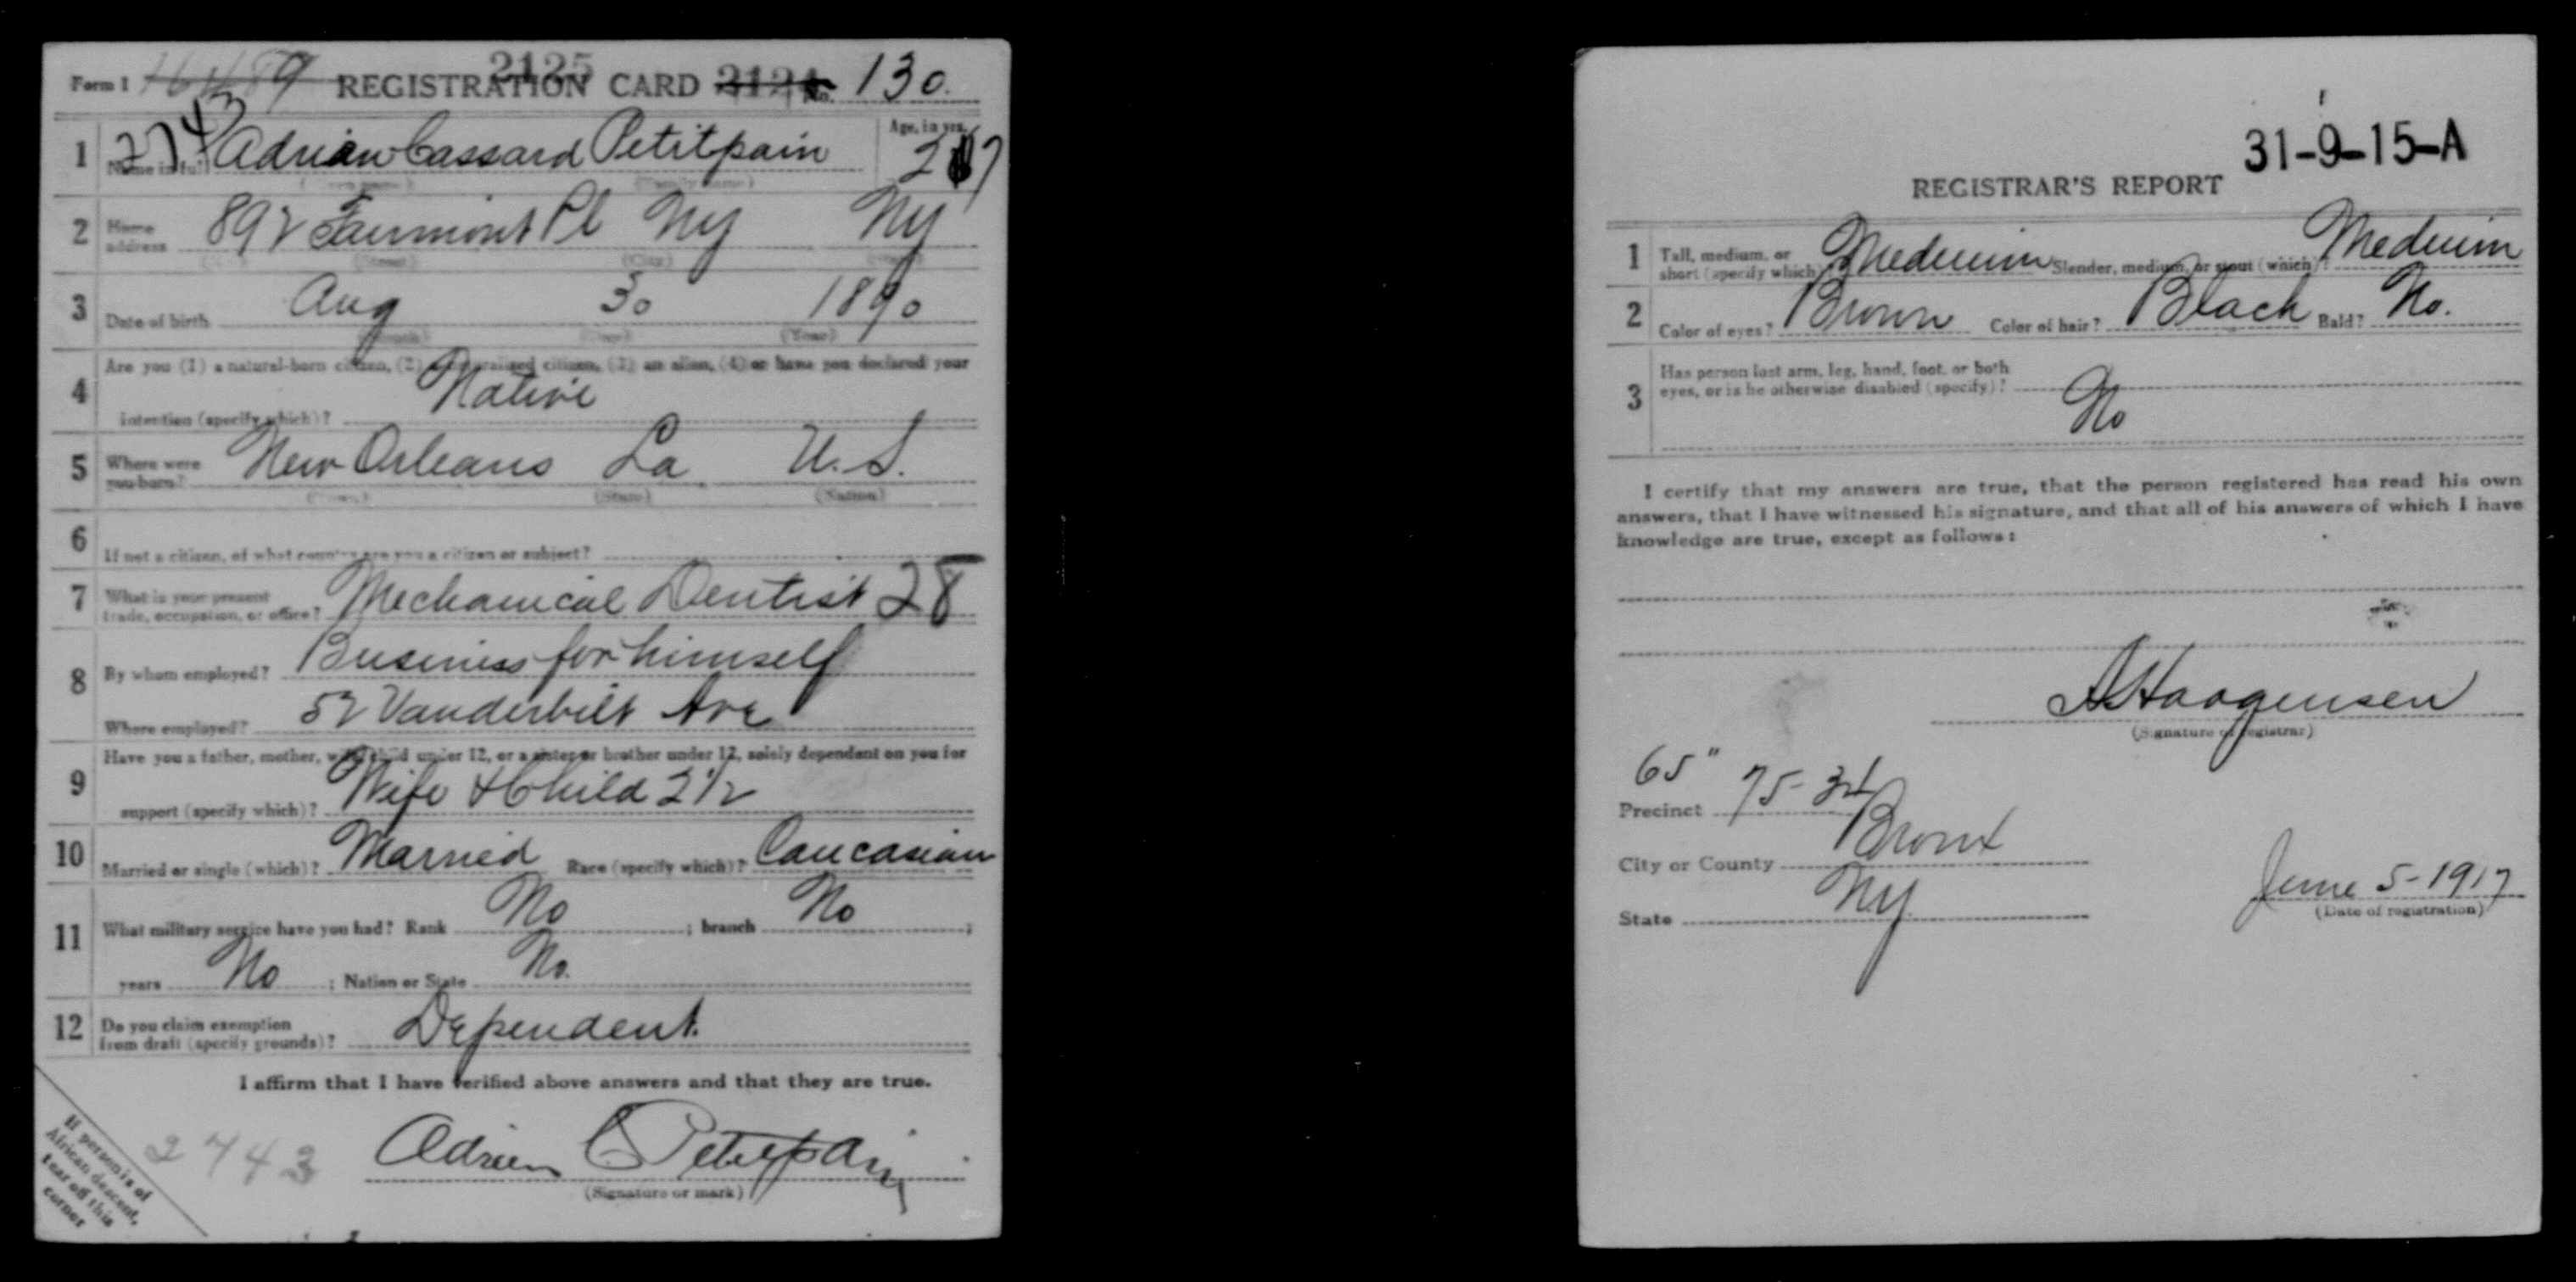 Form 1 REGISTRATION CARD No. 130.
2125
2743
1 Name in full Adrian Cassard Petitpain Age, in yrs. 27
(Given name) (Family name)
2 Home address 892 Fairmont Pl NY NY
(No.) (Street) (City) (State)
3 Date of birth Aug 30 1890
(Month) (Day) (Year)
4 Are you (1) a natural-born citizen, (2) a naturalized citizen, (3) an alien, (4) or have you declared your
intention (specify which)? Native
5 Where were you born? New Orleans La U.S.
(Town) (State) (Nation)
6 If not a citizen, of what country are you a citizen or subject?
7 What is your present trade, occupation, or office? Mechanical Dentist 28
8 By whom employed? Business for himself
Where employed? 52 Vanderbilt Ave
9 Have you a father, mother, wife, child under 12, or a sister or brother under 12, solely dependent on you for
support (specify which)? Wife & Child 2 1/2
10 Married or single (which)? Married Race (specify which)? Caucasian
11 What military service have you had? Rank No ; branch No ;
years No ; Nation or State No.
12 Do you claim exemption from draft (specify grounds)? Dependent.
I affirm that I have verified above answers and that they are true.
2743
Adrian C Petitpain
(Signature or mark)
If person is of
African descent,
tear off this
corner
31-9-15-A
REGISTRAR'S REPORT
1 Tall, medium, or short (specify which)? Medium Slender, medium, or stout (which)? Medium
2 Color of eyes? Brown Color of hair? Black Bald? No.
3 Has person lost arm, leg, hand, foot, or both
eyes, or is he otherwise disabled (specify)? No
I certify that my answers are true, that the person registered has read his own
answers, that I have witnessed his signature, and that all of his answers of which I have
knowledge are true, except as follows:
A Haagensen
(Signature of registrar)
65"
Precinct 75- 34
City or County Bronx
State NY
June 5-1917
(Date of registration)